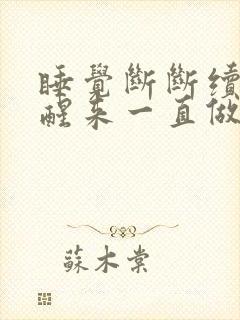 睡覺斷斷續
醒來一直做
蘇木棠